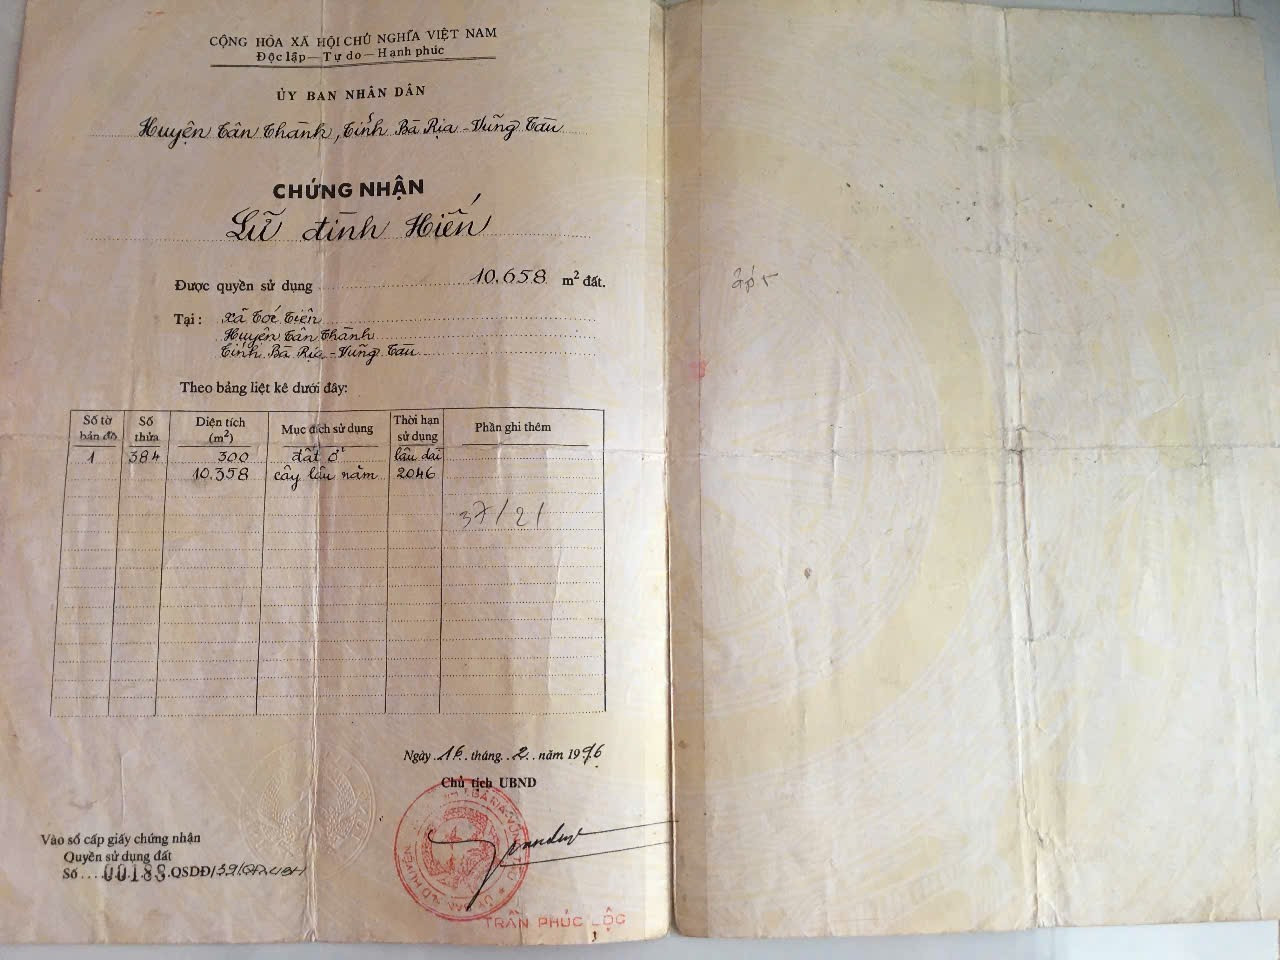 CỘNG HÒA XÃ HỘI CHỦ NGHĨA VIỆT NAM
Độc lập — Tự do — Hạnh phúc
ỦY BAN NHÂN DÂN
Huyện Tân Thành, Tỉnh Bà Rịa - Vũng Tàu
CHỨNG NHẬN
Lữ đình Hiến
Được quyền sử dụng 10.658 m² đất.
Tại: xã Tóc Tiên
Huyện Tân Thành
Tỉnh Bà Rịa - Vũng Tàu
Theo bảng liệt kê dưới đây:
Số tờ bản đồ Số thửa Diện tích (m²) Mục đích sử dụng Thời hạn sử dụng Phần ghi thêm
1 384 300 đất ở lâu dài
10.358 cây lâu năm 2046
37/21
Ngày 16 tháng 2 năm 1996
Chủ tịch UBND
Vào sổ cấp giấy chứng nhận
Quyền sử dụng đất
Số 00188 QSDĐ/
TRẦN PHÚC LỘC